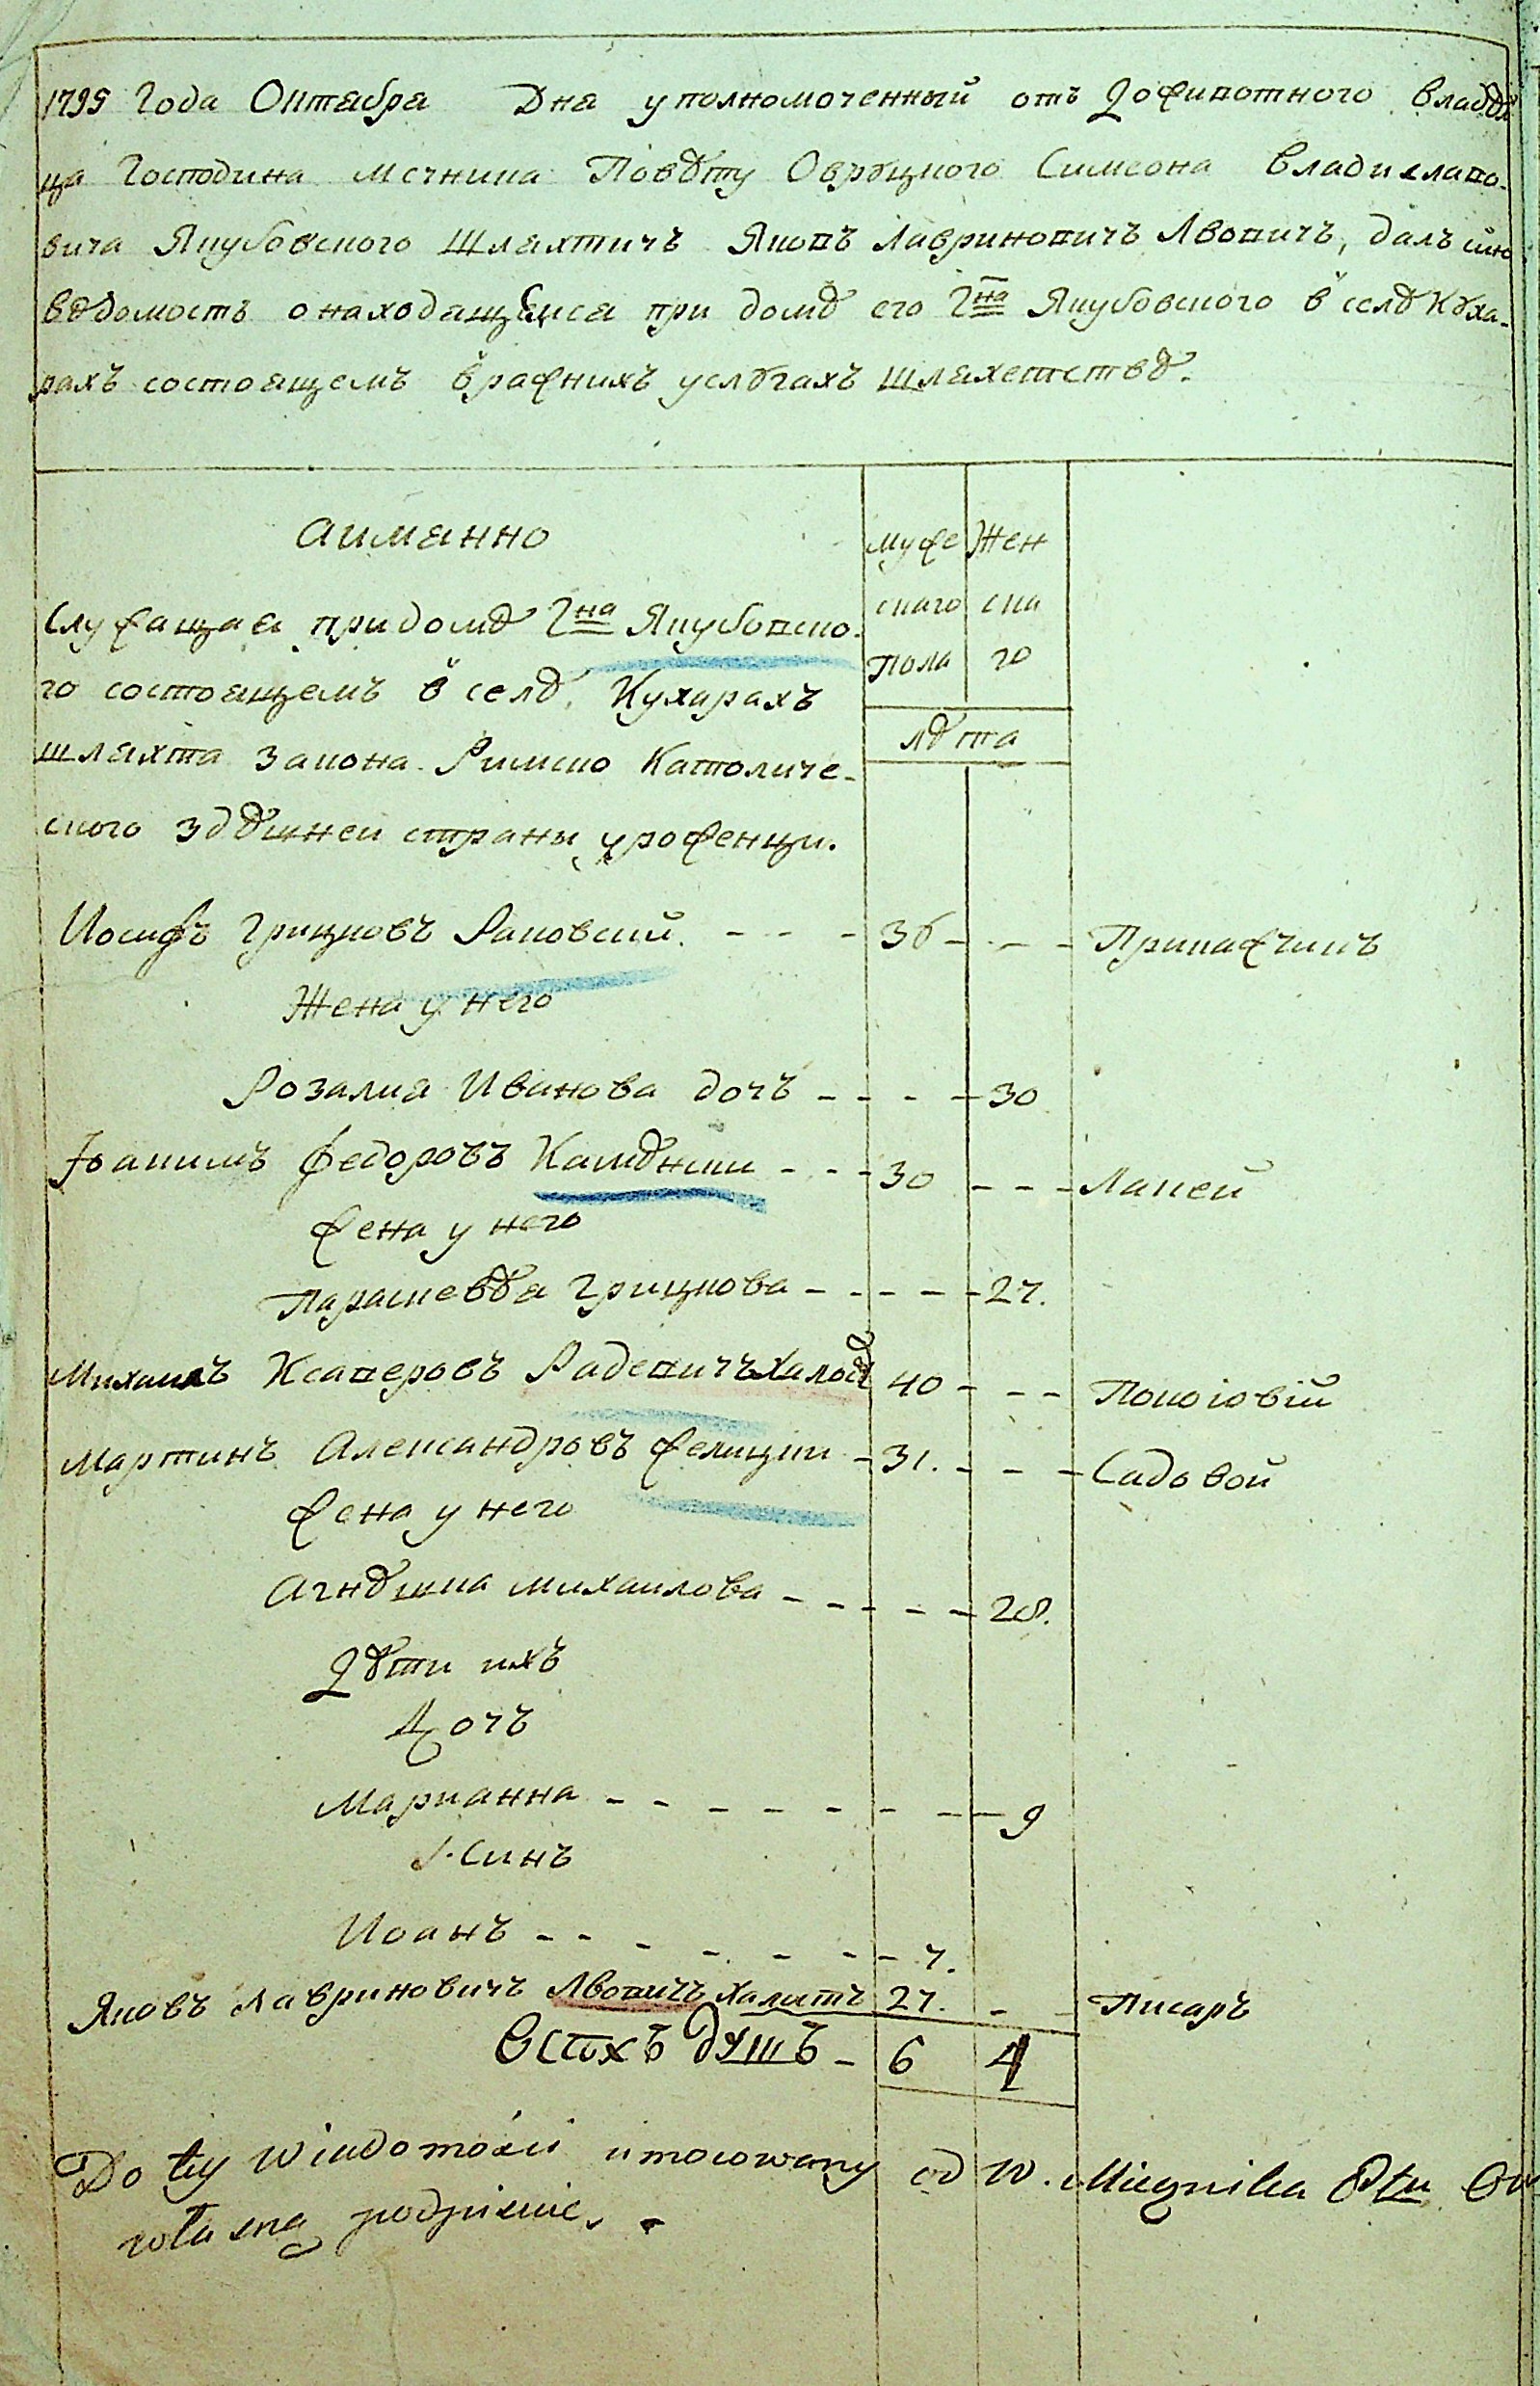 1795 Года Октабра Дна уполномоченный отъ Доживотного владѣл
ца Господина мечника Повѣту Овруцкого Симеона Владиславо-
вича Якубовского Шляхтичъ Яковъ Лавриновичъ Лвовичъ, далъ сию
вѣдомость о находащейся при домѣ его Гна Якубовского в селѣ Куха-
рахъ состоящемъ в разнихъ услугахъ шляхетствѣ.
аиманно
муже Жен
скаго ска
Пола го
лѣта
Служащая при домѣ Гна Якубовско-
го состоящемъ в селѣ Кухарахъ
шляхта закона Римско Католиче-
ского здѣшней страны уроженци.
Иосифъ Грицковъ Раковский. - - - 36 - - - Прикажчикъ
Жена у него
Розалия Иванова дочъ - - - - 30
Іоакимъ Федоровъ Камѣнски - - - 30 - - - Лакей
жена у него
Параскевѣя Грицкова - - - - - 27.
Михаилъ Ксаверовъ Радевичъ Холост 40 - - - Покоіовій
Мартинъ Александровъ Желицки - 31. - - - Садовой
жена у него
Агнѣшка Михаилова - - - - - 28.
Дѣти ихъ
Дочъ
Марианна - - - - - - - - 9
Синъ
Иоанъ - - - - - - - 7.
Яковъ Лавриновичъ Лвовичъ Халитъ 27. - Писаръ
Всѣхъ душъ - 6 4
Do tey Wiadomości umocowany od W. Miecznika Ptu Ow
własną podpisuie.